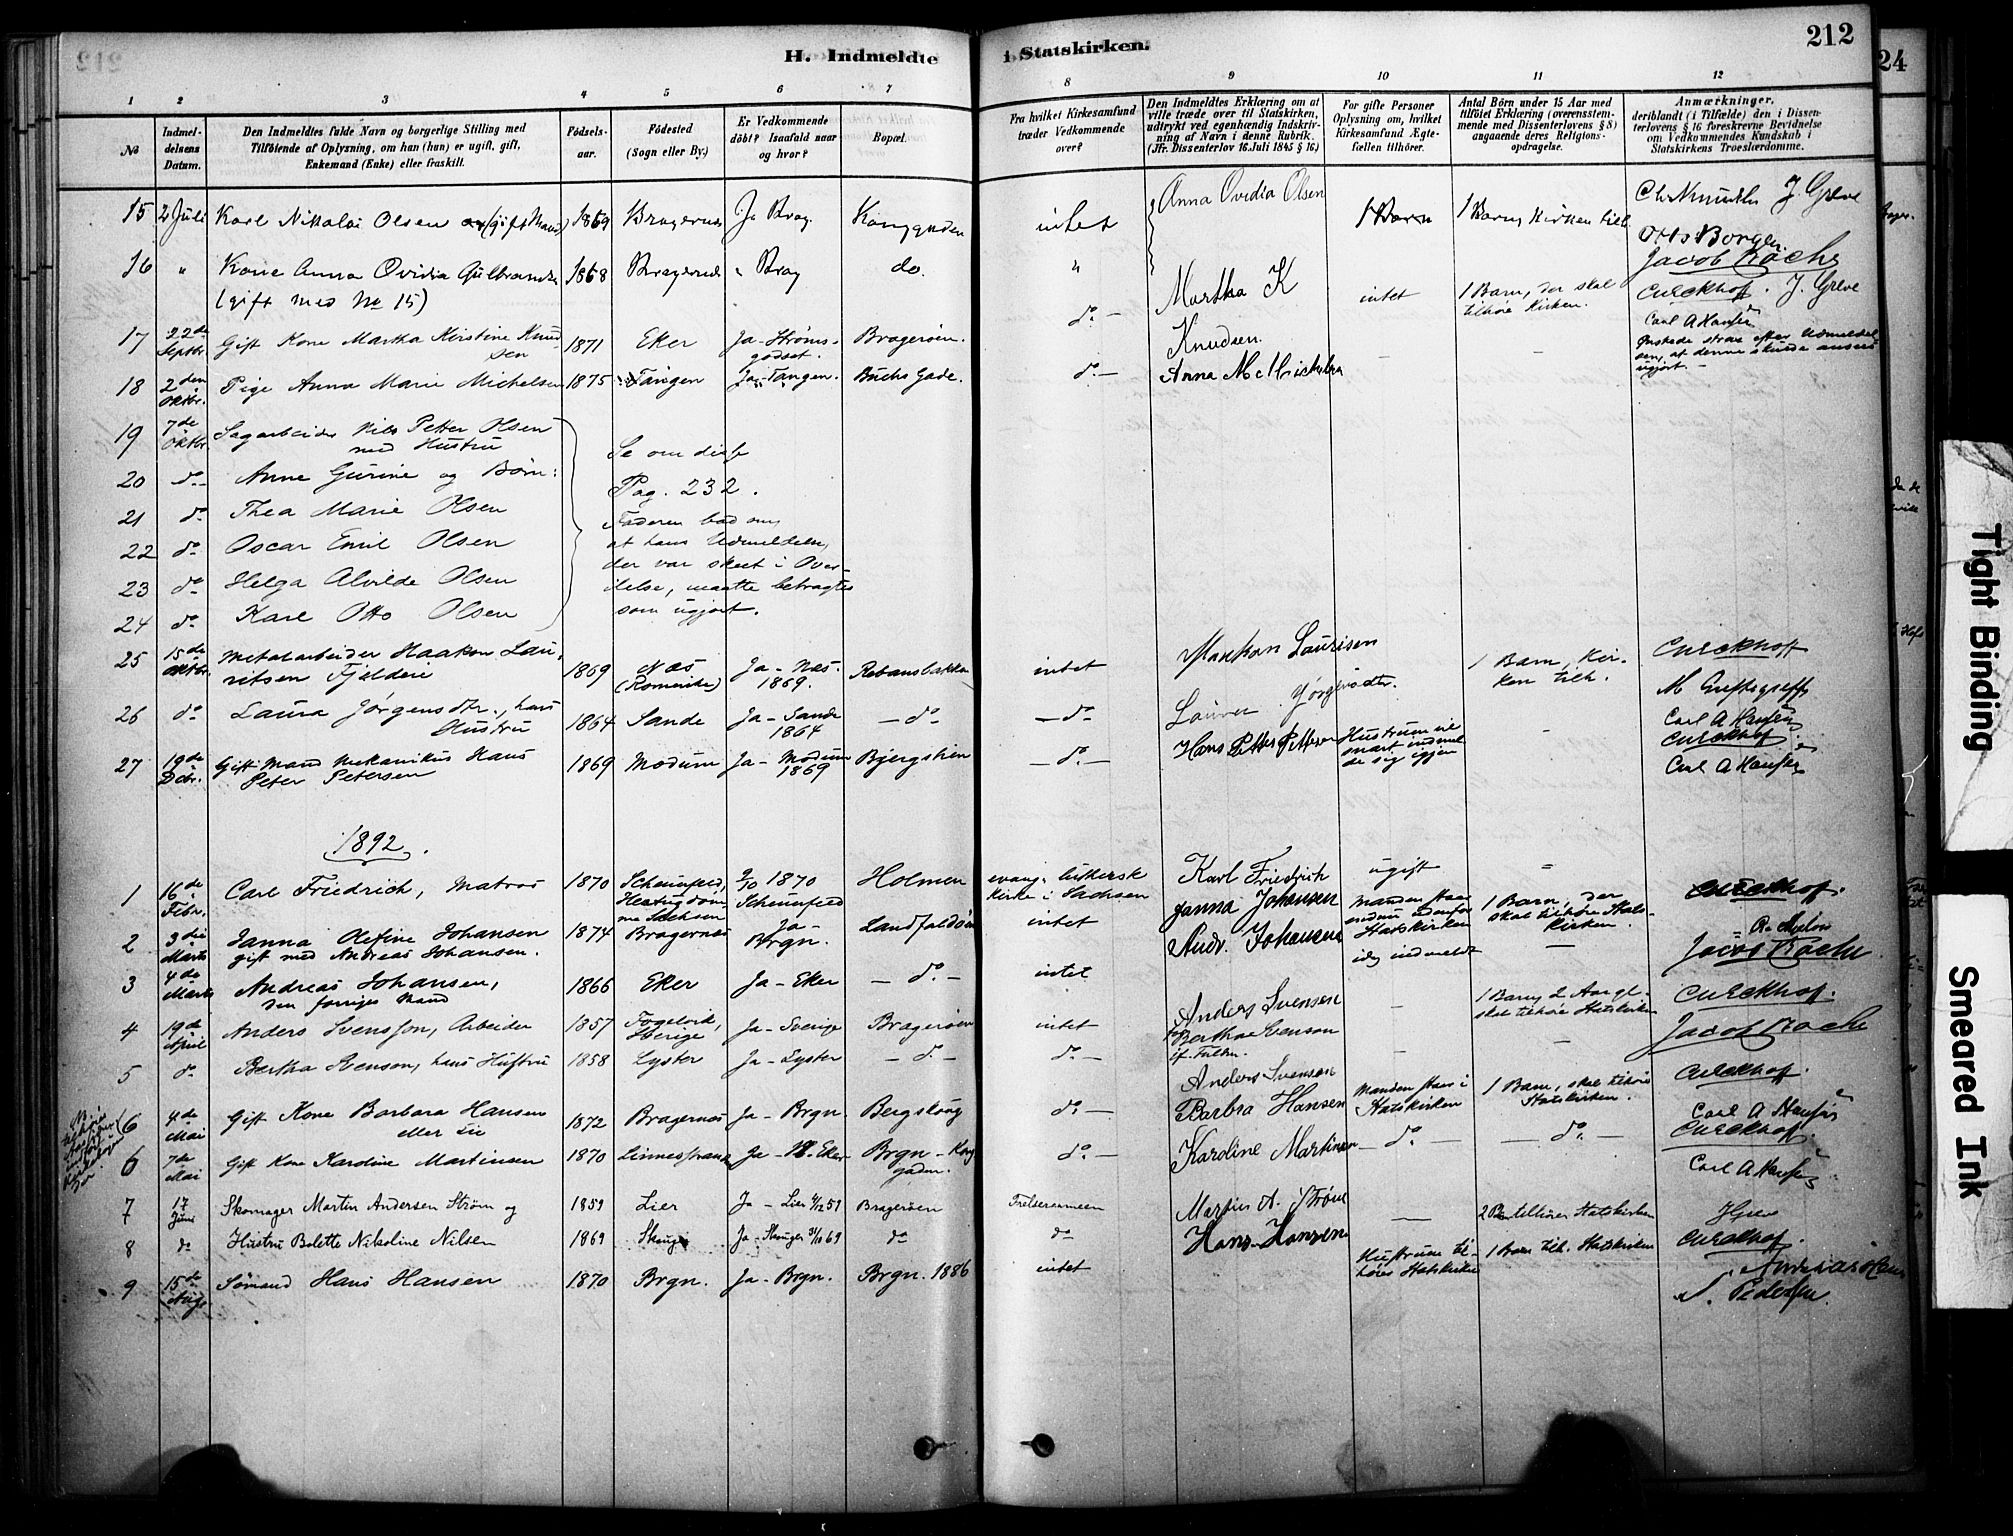 212
H. Indmeldte i Statskirken.
24
1 2 3 4 5 6 7 8 9 10 11 12
No
Indmel-
delsens
Datum.
Den Indmeldtes fulde Navn og borgerlige Stilling med
Tilföiende af Oplysning, om han (hun) er ugift, gift,
Enkemand (Enke) eller fraskilt.
Födsels-
aar.
Födested
(Sogn eller By.)
Er Vedkommende
döbt? Isaafald naar
og hvor?
Bopæl.
Fra hvilket Kirkesamfund
træder Vedkommende
over?
Den Indmeldtes Erklæring om at
ville træde over til Statskirken,
udtrykt ved egenhændig Indskriv-
ning af Navn i denne Rubrik.
(Jfr. Dissenterlov 16. Juli 1845 § 16)
For gifte Personer
Oplysning om, hvilket
Kirkesamfund Ægte-
fællen tilhörer.
Antal Börn under 15 Aar med
tilföiet Erklæring (overensstem-
mende med Dissenterlovens § 8)
angaaende deres Religions-
opdragelse.
Anmærkninger,
deriblandt (i Tilfælde) den i Dissen-
terlovens § 16 foreskrevne Bevidnelse
om Vedkommendes Kundskab i
Statskirkens Troeslærdomme.
15 2 Juli Karl Nikolai Olsen (gift Mand) 1869 Bragernes Ja Brag. Konggaden intet Anna Ovidia Olsen 1 Barn 1 Barn, Kirken tilh. J Greve
Otto Borgen
16 " Kone Anna Ovidia Gulbrandsen 1868 Bragernes " Brag do. "
(gift med No 15)
Jacob Kroche
17 22de Septbr. Gift Kone Martha Kirstine Knud-
sen 1871 Eker Ja - Strøms-
godset. Bragerøen. do - Martha K
Knudsen. intet 1 Barn, der skal
tilhøre Kirken. Curckhoff. J. Greve
Carl A Hansen
18 2den Oktbr. Pige Anna Marie Michelsen 1875 Tangen Ja - Tangen. Buchs Gade. do - Anna M Michelsen - - Ønskede strax efter Udmeldel
sen, at denne skulde ansees
ugjort. -
19 7de Oktbr. Sagarbeider Nils Petter Olsen
med Hustru
20 do Anne Gurine og Børn:
21 do Thea Marie Olsen
22 do Oscar Emil Olsen
23 do Helga Alvilde Olsen
24 do Karl Otto Olsen
Se om disse
Pag. 232.
Faderen bad om,
at hans Udmeldelse,
der var skeet i Over-
ilelse, maatte betragtes
som ugjort.
25 15de Oktbr. Metalarbeider Haakon Lau-
ritsen Fjelderi 1869 Næs
(Romerike) Ja - Næs.
1869. Rebansbakken intet Haakon Laurisen 1 Barn, Kir-
ken tilh. Curckhoff
26 do Laura Jørgensdtr., hans
Hustru 1864 Sande Ja - Sande
1864 - do - - do - Laura Jørgensdtr. Carl A Hansen
27 19de Dcbr. Gift Mand Mekanikus Hans
Peter Petersen 1869 Modum Ja - Modum
1869 Bjergstien - do - Hans Petter Pettersen Hustruen vil
snart indmel
de sig igjen - Curckhof
Carl A Hansen
1892.
1 16de Febr. Carl Friedrich, Matros 1870 Scheunfeld,
Hertugdöm-
me Sachsen 2/10 1870
Scheunfeld Holmen evang. luthersk
Kirke i Sachsen Karl Friedrich ugift - Curckhof.
2 3die Marts Janna Olefine Johansen
gift med Andreas Johansen. 1874 Bragernes Ja -
Brgn. Landfaldøen intet Janna Johansen Manden staar
endnu udenfor
Statskirken
idag indmeldt 1 Barn, der
skal tilhøre Stats-
kirken.
3 4de Marts Andreas Johansen,
den forriges Mand 1866 Eker Ja - Eker - do - intet Andr. Johansen - Jacob Kroche
4 19de April Anders Svensson, Arbeider 1857 Fogelvik,
Sverige Ja - Sverige Bragerøen intet Anders Svensen - 1 Barn, 2 Aar gl.
skal tilhøre Statskirken Curckhof.
5 do Bertha Svenson, hans Hustru 1858 Lyster Ja - Lyster - do - do - for Berthae Svenson
if. Fuldm.
Anders Svensen - - Jacob Kroche
6 4de Mai Gift Kone Barbara Hansen
eller Lie 1872 Bragernes Ja - Brgn. Bergskoug do - Barbra Hansen Manden staar i
Statskirken 1 Barn, skal tilhøre
Statskirken. Curckhof.
Carl A Hansen
6 7de Mai Gift Kone Karoline Martinsen 1870 Linnesstranden Ja - N. Eker Brgn - Kong
gaden. do - Karoline Martinsen - do - - do. - Curckhof.
Carl A Hansen
7 17 Juni Skomager Martin Andersen Strøm og 1859 Lier Ja - Lier 4/12 59 Bragerøen Frelserarmeen Martin A. Strøm - 2 Børn tilhører Statskirken
8 do Hustru Bolette Nikoline Nilsen 1869 Skouge Ja - Skouger 31/10 69 do do
9 15de Aug. Sømand Hans Hansen 1870 Brgn. Ja - Brgn. Brgn. 1886 intet Hans Hansen Hustruen til-
hører Statskirken 1 Barn tilh. Statskirken Curckhof.
N. Pedersen.
Tight Binding
Smeared Ink